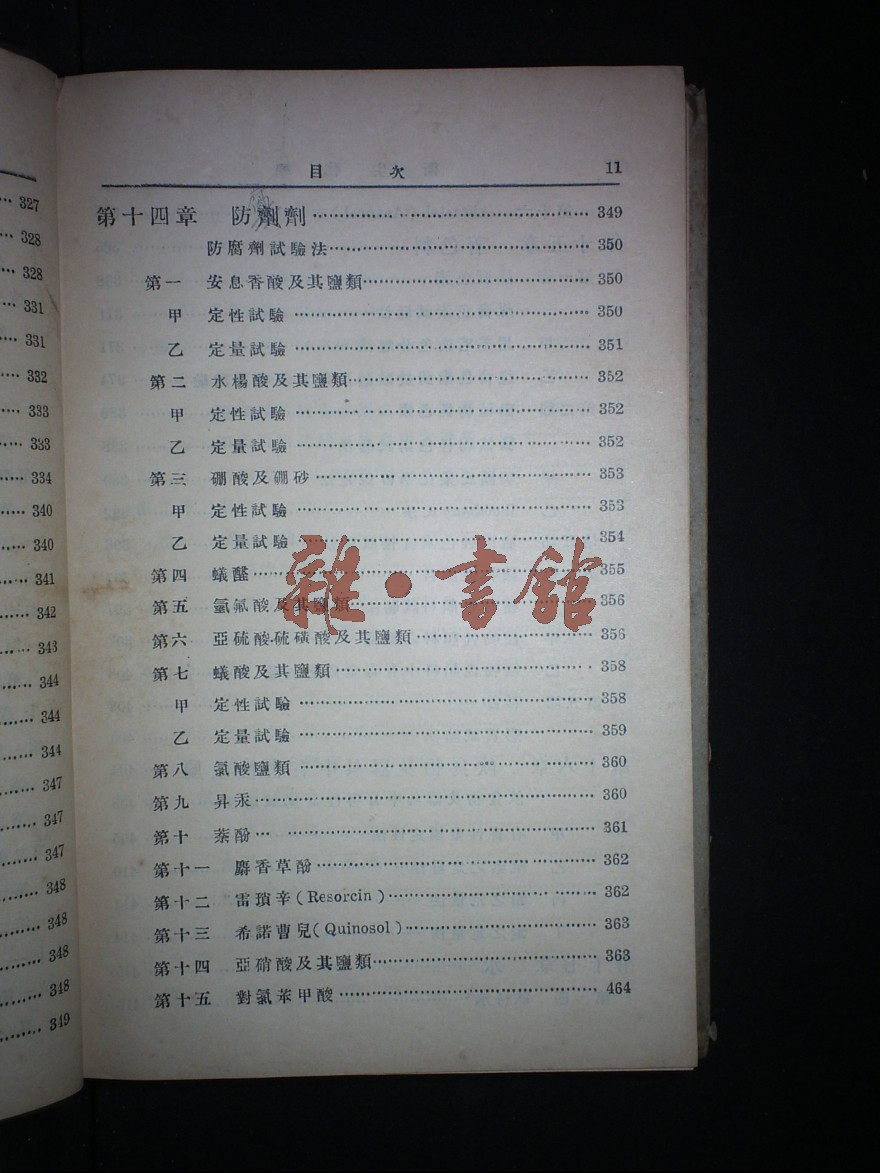 327
328
328
331
331
332
333
333
334
340
340
341
342
343
344
344
344
347
347
347
348
348
348
348
349
目 次 11
第十四章 防劑劑 349
防腐劑試驗法 350
第一 安息香酸及其鹽類 350
甲 定性試驗 350
乙 定量試驗 351
第二 水楊酸及其鹽類 352
甲 定性試驗 352
乙 定量試驗 352
第三 硼酸及硼砂 353
甲 定性試驗 353
乙 定量試驗 354
第四 蟻醛 355
第五 氫氟酸及其鹽類 356
第六 亞硫酸硫磺酸及其鹽類 356
第七 蟻酸及其鹽類 358
甲 定性試驗 358
乙 定量試驗 359
第八 氯酸鹽類 360
第九 昇汞 360
第十 萘酚 361
第十一 麝香草酚 362
第十二 雷瑣辛(Resorcin) 362
第十三 希諾曹兒(Quinosol) 363
第十四 亞硝酸及其鹽類 363
第十五 對氯苯甲酸 464
雜·書館